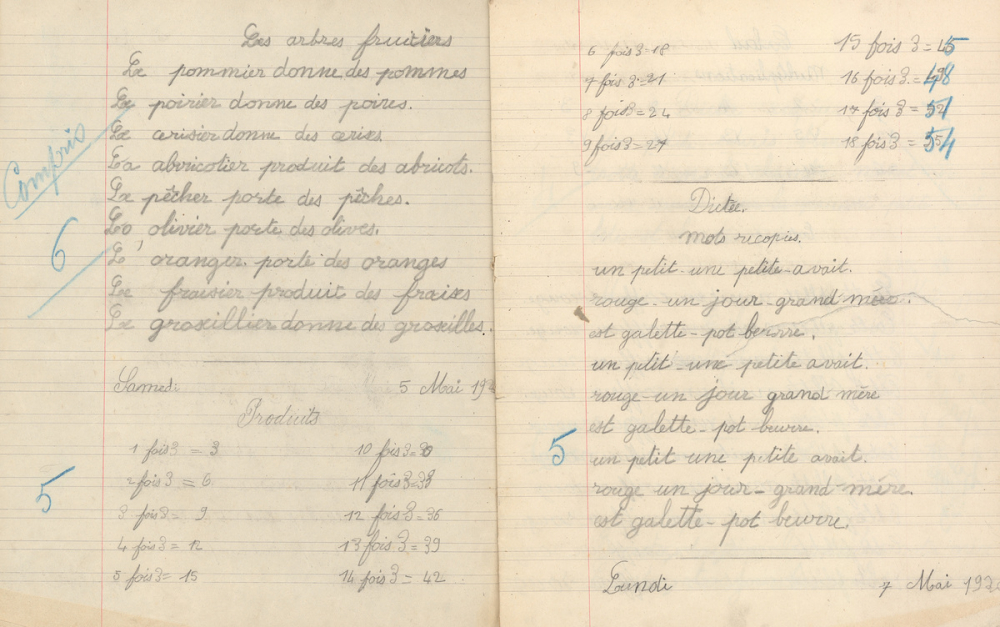 Les arbres fruitiers
Le pommier donne des pommes
Le poirier donne des poires.
Le cerisier donne des cerises
La abricotier produit des abricots.
Le pêcher porte des pêches.
Lo olivier porte des olives.
L' oranger porte des oranges
Le fraisier produit des fraises
Le grosxillier donne des groseilles.
Compris
6
Samedi 5 Mai 19
Produits
1 fois 3 = 3 10 fois 3 = 30
2 fois 3 = 6 11 fois 3 = 33
3 fois 3 = 9 12 fois 3 = 36
4 fois 3 = 12 13 fois 3 = 39
5 fois 3 = 15 14 fois 3 = 42
5
6 fois 3 = 18 15 fois 3 = 45
7 fois 3 = 21 16 fois 3 = 48
8 fois 3 = 24 17 fois 3 = 51
9 fois 3 = 27 18 fois 3 = 54
Dictée.
mots recopiés.
un petit - une petite - avait.
rouge - un jour - grand mère.
est galette - pot beurre.
un petit - une petite avait.
rouge - un jour grand mère
est galette - pot beurre.
un petit une petite avait.
rouge un jour - grand mère.
est galette - pot beurre.
5
Lundi 7 Mai 193